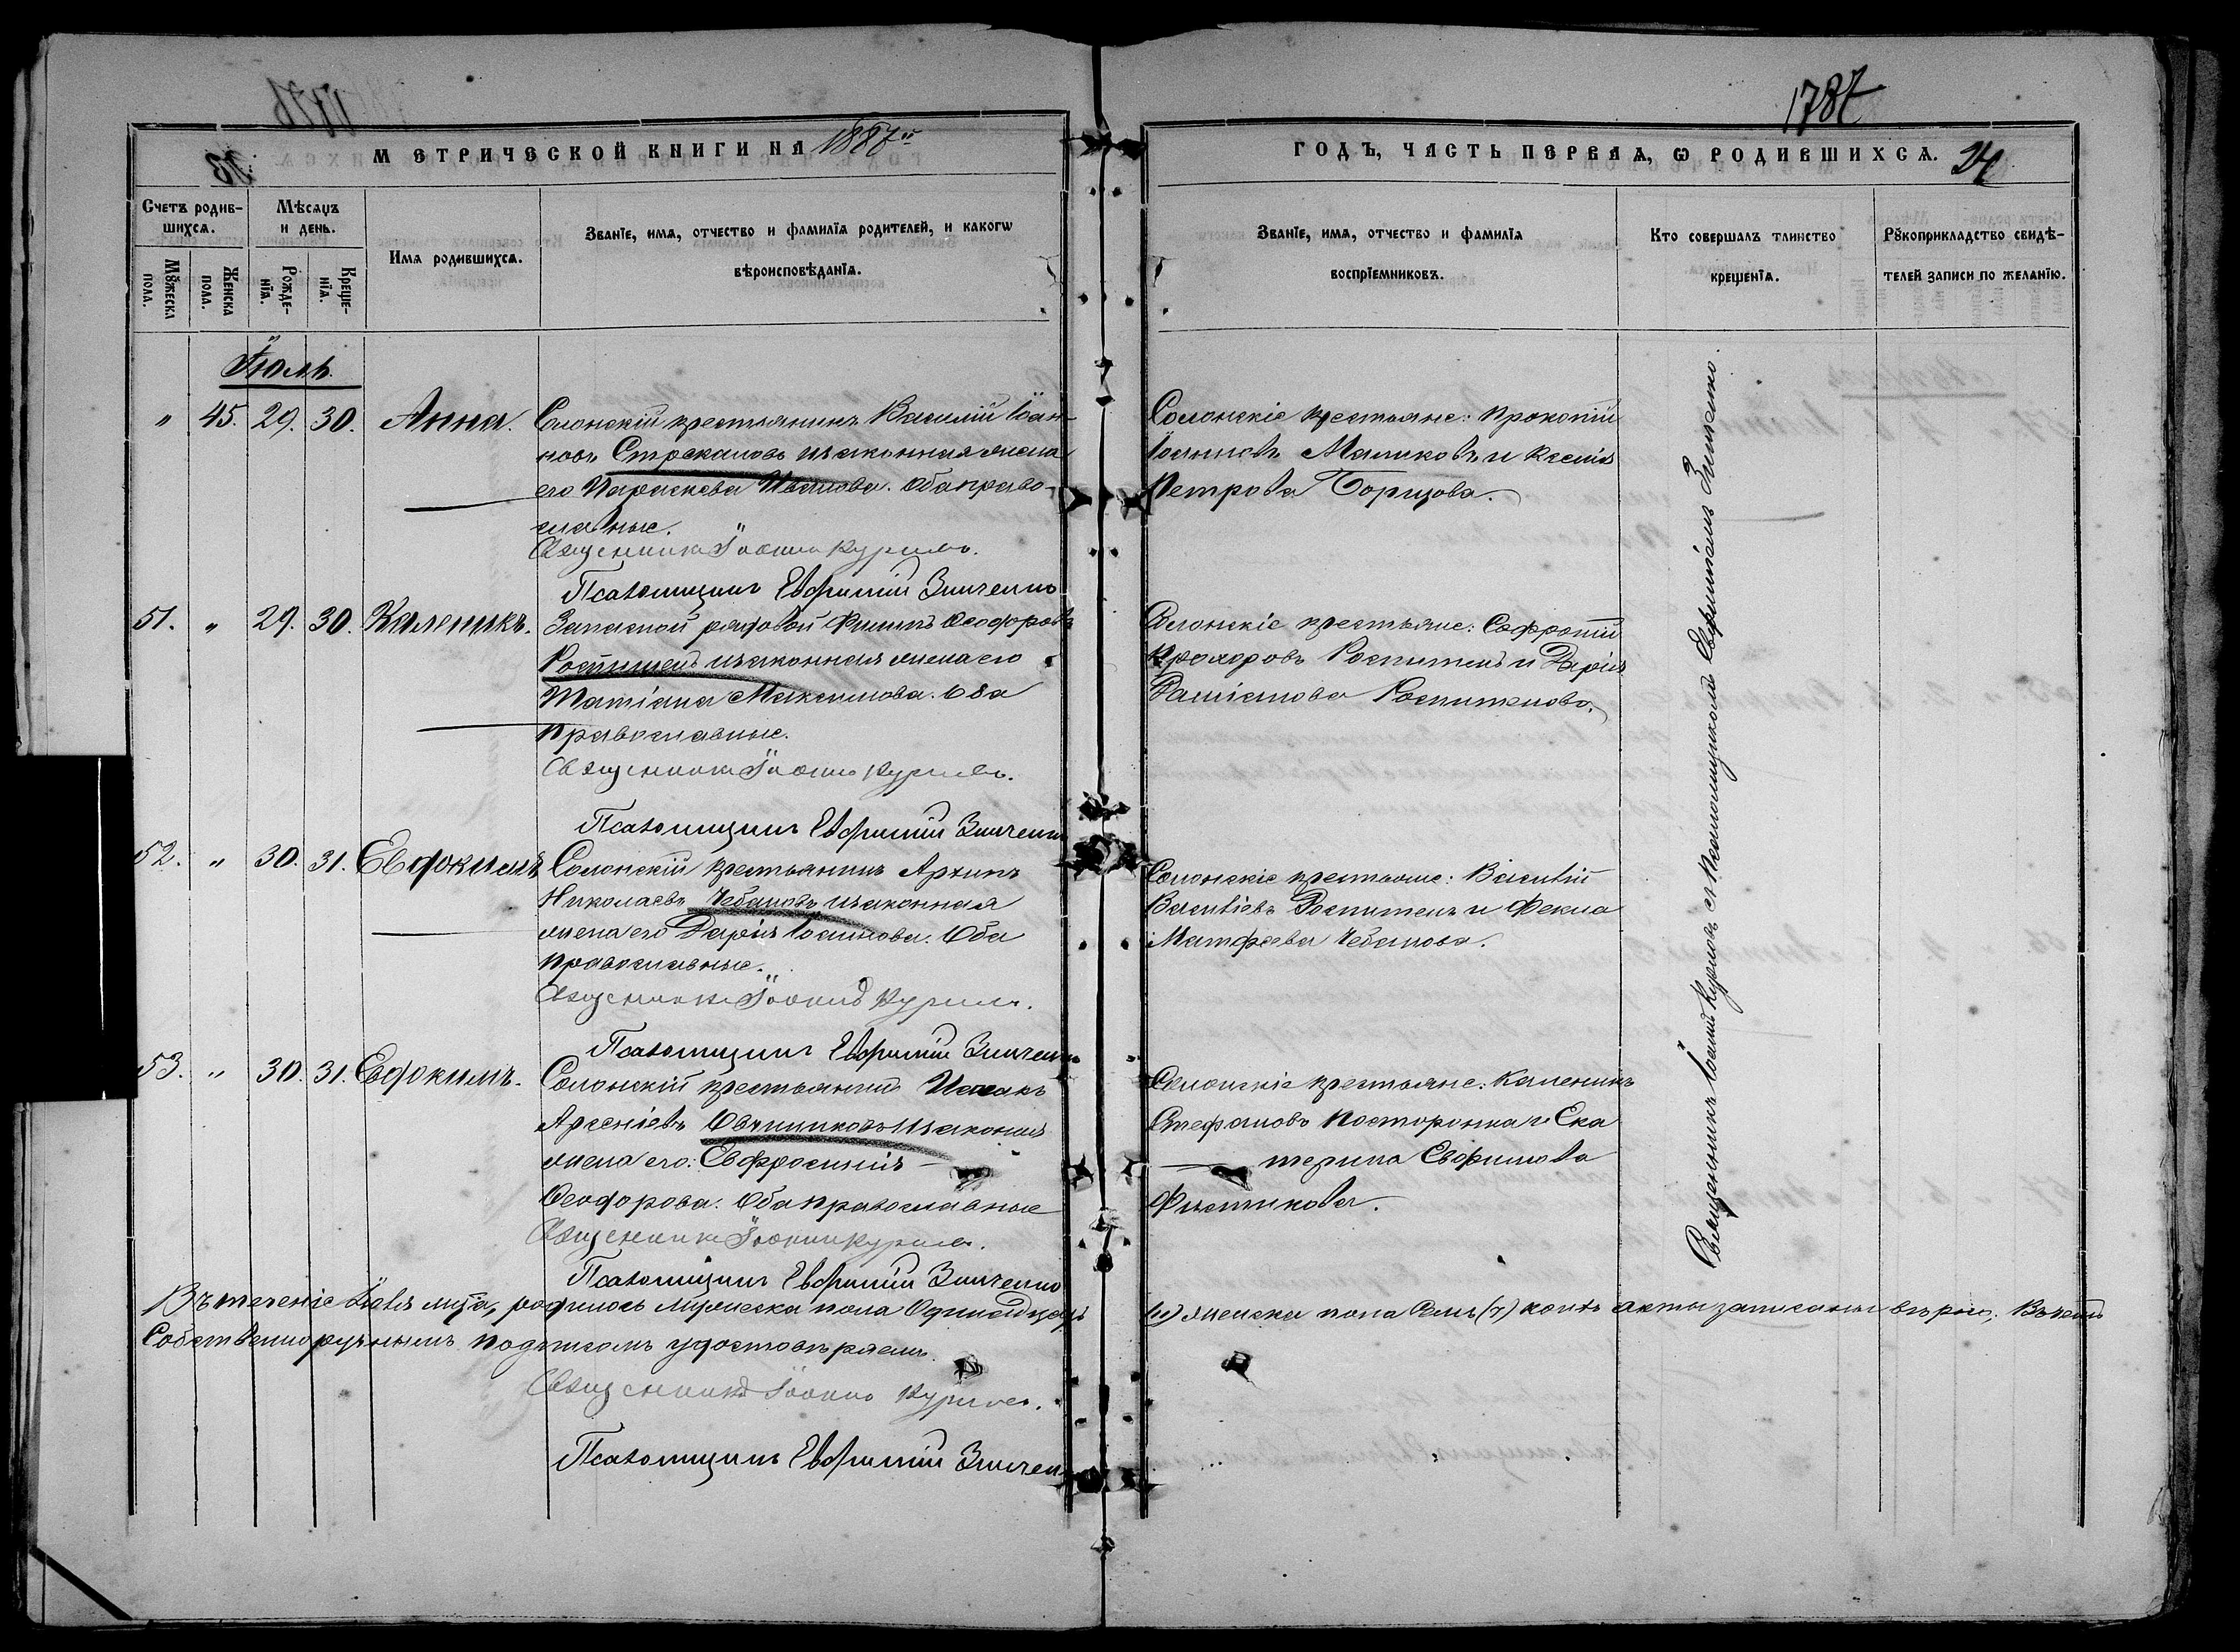 1787
МЕТРИЧЕСКОЙ КНИГИ НА 1887й
ГОДЪ, ЧАСТЬ ПЕРВАѦ, Ѡ РОДИВШИХСѦ. 24
Счетъ родив-
шихсѧ.
Мѣсѧцъ
и день.
Имѧ родившихсѧ.
Званїе, имѧ, отчество и фамилїѧ родителей, и какогѡ
вѣроисповѣданїѧ.
Мꙋжеска
пола.
Женска
пола.
Рожде-
нїѧ.
Креще-
нїѧ.
Званїе, имѧ, отчество и фамилїѧ
воспрїемниковъ.
Кто совершалъ таинство
крещенїѧ.
Рꙋкоприкладство свидѣ-
телей записи по желанїю.
Іюль.
" 45. 29. 30. Анна.
Солонскій крестьянинъ Василій Іоан-
новъ Стрекаловъ и законная жена
его Параскева Иванова. Оба право-
славные.
Священникъ Іоаннъ Куриловъ.
Псаломщикъ Евфимій Зинченко
Солонскіе крестьяне: Прокопій
Іоанновъ Маликовъ и Ксенія
Петрова Борщова.
51. " 29. 30. Каленикъ.
Запасной рядовой Филипъ Ѳеодоровъ
Роспитенъ и законная жена его
Татіана Максимова. Оба
православные.
Священникъ Іоаннъ Куриловъ.
Псаломщикъ Евфимій Зинченко
Солонскіе крестьяне: Софроній
Прохоровъ Роспитенъ и Дарія
Даміанова Роспитенова.
52. " 30. 31. Евдокимъ
Солонскій крестьянинъ Архипъ
Николаевъ Чебановъ и законная
жена его Дарія Іоаннова. Оба
православные.
Священникъ Іоаннъ Куриловъ.
Псаломщикъ Евфимій Зинченко
Солонскіе крестьяне: Василій
Васильевъ Роспитенъ и Фекла
Матфеева Чебанова.
53. " 30. 31. Евдокимъ.
Солонскій крестьянинъ Исаакъ
Арсеніевъ Овчинниковъ и законная
жена его: Евфросинія
Ѳеодорова. Оба православные
Священникъ Іоаннъ Куриловъ.
Псаломщикъ Евфимій Зинченко
Солонскіе крестьяне: Каленикъ
Стефановъ Посторонка и Ека
терина Евфимова
Фистикова.
Священникъ Іоаннъ Куриловъ съ Псаломщикомъ Евфиміемъ Зинченко.
Въ теченіе Іюля мѣсяца, родилось мужеска пола Одинадцать (11) женска пола Семь (7) коихъ акты записаны вѣрно; Въ чемъ
Собственноручнымъ подписомъ удостовѣряемъ.
Священникъ Іоаннъ Куриловъ.
Псаломщикъ Евфимій Зинченко